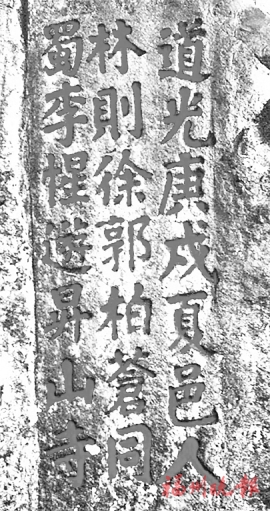 道光庚戌夏邑人
林則徐郭柏蒼同
蜀李惺遊昇山寺
福州晚報